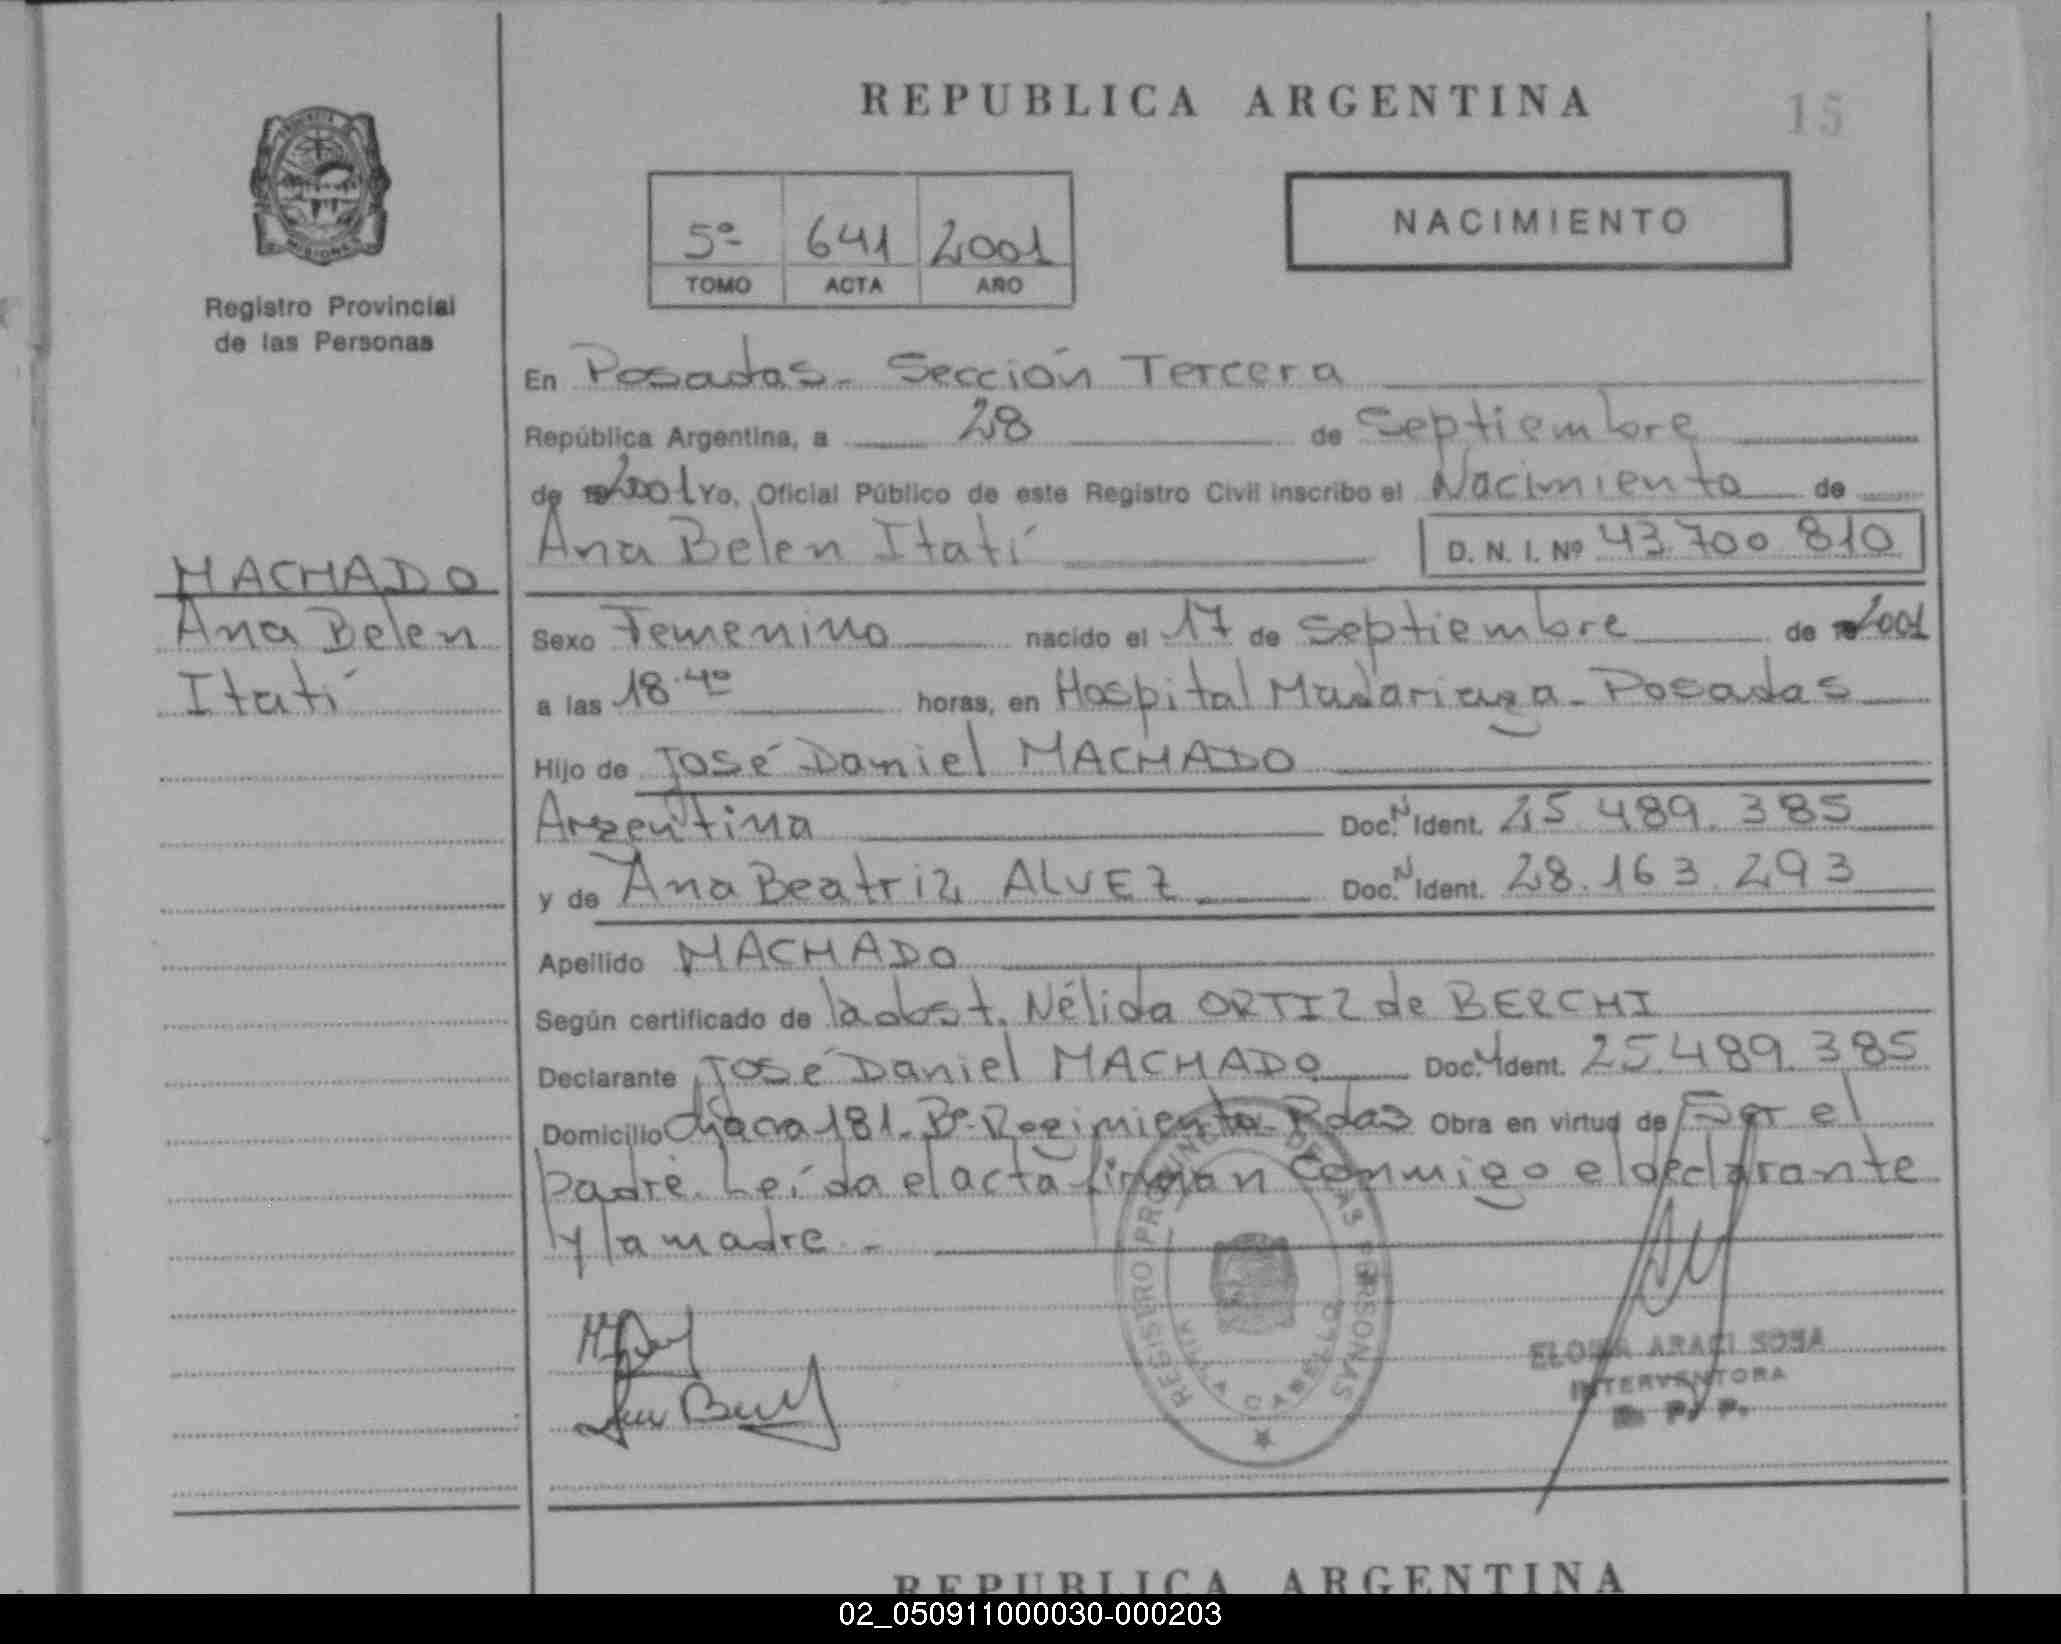 REPUBLICA ARGENTINA
15
Registro Provincial
de las Personas
5º 641 2001
TOMO ACTA AÑO
NACIMIENTO
En Posadas - Sección Tercera
República Argentina, a 28 de Septiembre
de 2001 Yo, Oficial Público de este Registro Civil inscribo el Nacimiento de
Ana Belen Itatí D. N. I. Nº 43.700 810
MACHADO
Ana Belen
Itatí
Sexo Femenino nacido el 17 de Septiembre de 2001
a las 18.40 horas, en Hospital Madariaga - Posadas
Hijo de José Daniel MACHADO
Argentina Doc. N Ident. 25.489.385
y de Ana Beatriz ALVEZ Doc. N Ident. 28.163.293
Apellido MACHADO
Según certificado de la obst. Nélida ORTIZ de BERCHI
Declarante José Daniel MACHADO Doc. Ident. 25.489.385
Domicilio Chacra 181 - Bº Regimiento - Pdas Obra en virtud de Ser el
padre. Leída el acta firman conmigo el declarante
y la madre. -
REGISTRO PROVINCIAL DE LAS PERSONAS
CABELLO
ARACI SOSA
INTERVENTORA
R. P. P.
REPUBLICA ARGENTINA
02_050911000030-000203